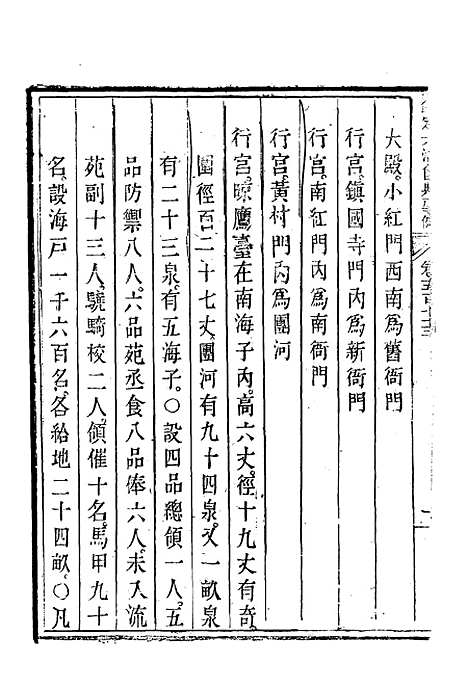 大殿。小紅門西南爲舊衙門
行宮。鎭國寺門內爲新衙門
行宮。南紅門內爲南衙門
行宮。黃村門內爲團河
行宮。晾鷹臺在南海子內。高六丈。徑十九丈有奇。
圍徑百二十七丈。團河有九十四泉。又一畝泉
有二十三泉。有五海子。○設四品總領一人。五
品防禦八人。六品苑丞食八品俸六人。未入流
苑副十三人。驍騎校二人。領催十名。馬甲九十
名。設海戸一千六百名。各給地二十四畝。○凡